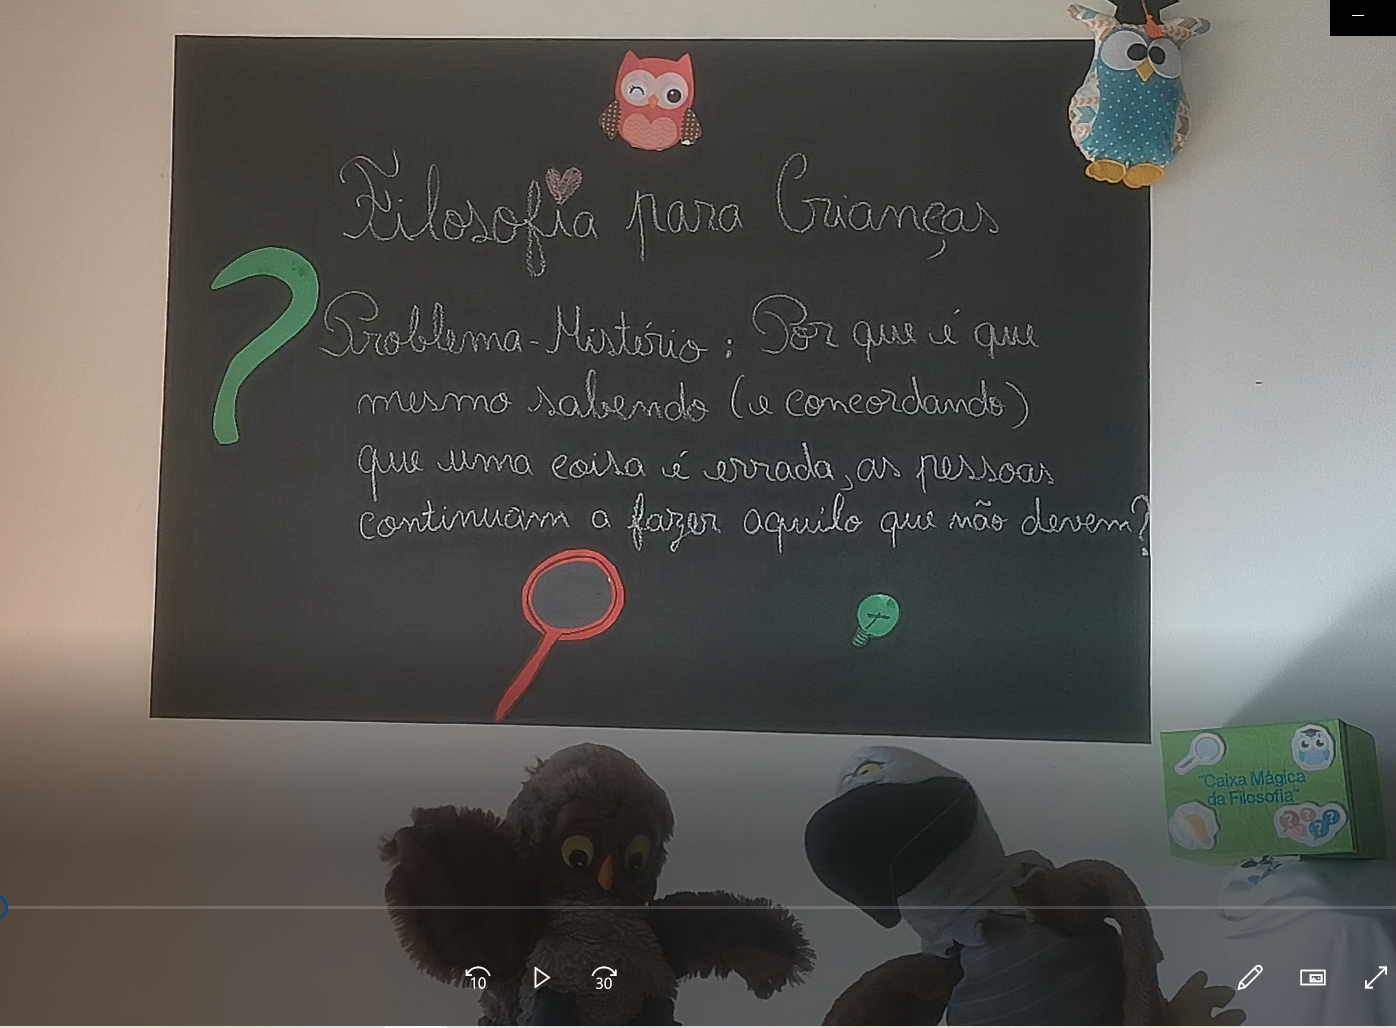 Filosofia para Crianças
Problema-Mistério: Por que é que
mesmo sabendo (e concordando)
que uma coisa é errada, as pessoas
continuam a fazer aquilo que não devem?
"Caixa Mágica
da Filosofia"
10
30